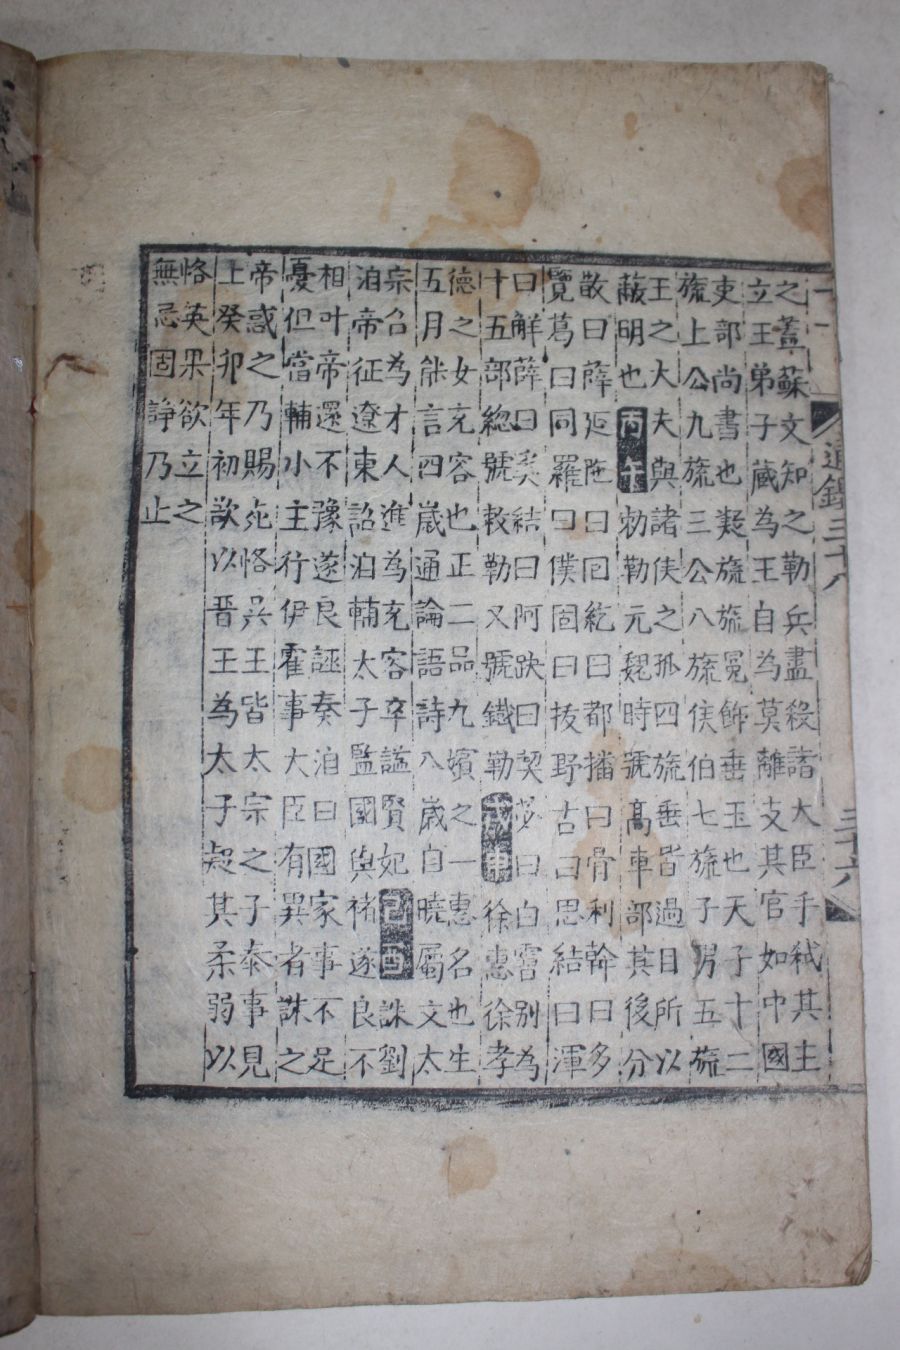 通鑑三十八
三十六
之蓋蘇文知之勒兵盡殺諸大臣手弒其主
立王弟子藏為王自為莫離支其官如中國
吏部尚書也疑旒旒冕飾垂玉也天子十二
旒上公九旒三公八旒侯伯七旒子男五旒
王之大夫與諸侯之孤四旒垂皆過目所以
蔽明也丙午勑勒元魏時號高車部其後分
散曰薛延陁曰囘紇曰都播曰骨利幹曰多
覽葛曰同羅曰僕固曰拔野古曰思結曰渾
曰斛薛曰奚結曰阿跌曰契苾曰白霫別為
十五部總號敕勒又號鐵勒戊申徐惠徐孝
德之女充容也正二品九嬪之一惠名也生
五月能言四歲通論語詩八歲自曉屬文太
宗召為才人進為充容卒謚賢妃己酉誅劉
洎帝征遼東詔洎輔太子監國與褚遂良不
相叶帝還不豫遂良誣奏洎曰國家事不足
憂但當輔小主行伊霍事大臣有異者誅之
帝惑之乃賜死恪吳王皆太宗之子泰事見
上癸卯年初欲以晋王為太子疑其柔弱以
恪英果欲立之
無忌固諍乃止